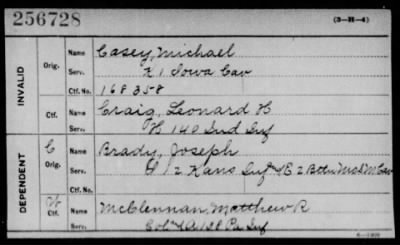 256728
(3-H-4)
INVALID
Orig.
Name Casey, Michael
Serv. K 1 Iowa Cav
Ctf. No. 168358
Ctf.
Name Craig, Leonard H
Serv. H 140 Ind Inf
DEPENDENT
C
Orig.
Name Brady, Joseph
Serv. 2 Kans Inf & E 2 Cav
Ctf. No.
W
Ctf.
Name McClennan, Matthew R
Serv. Pa Inf